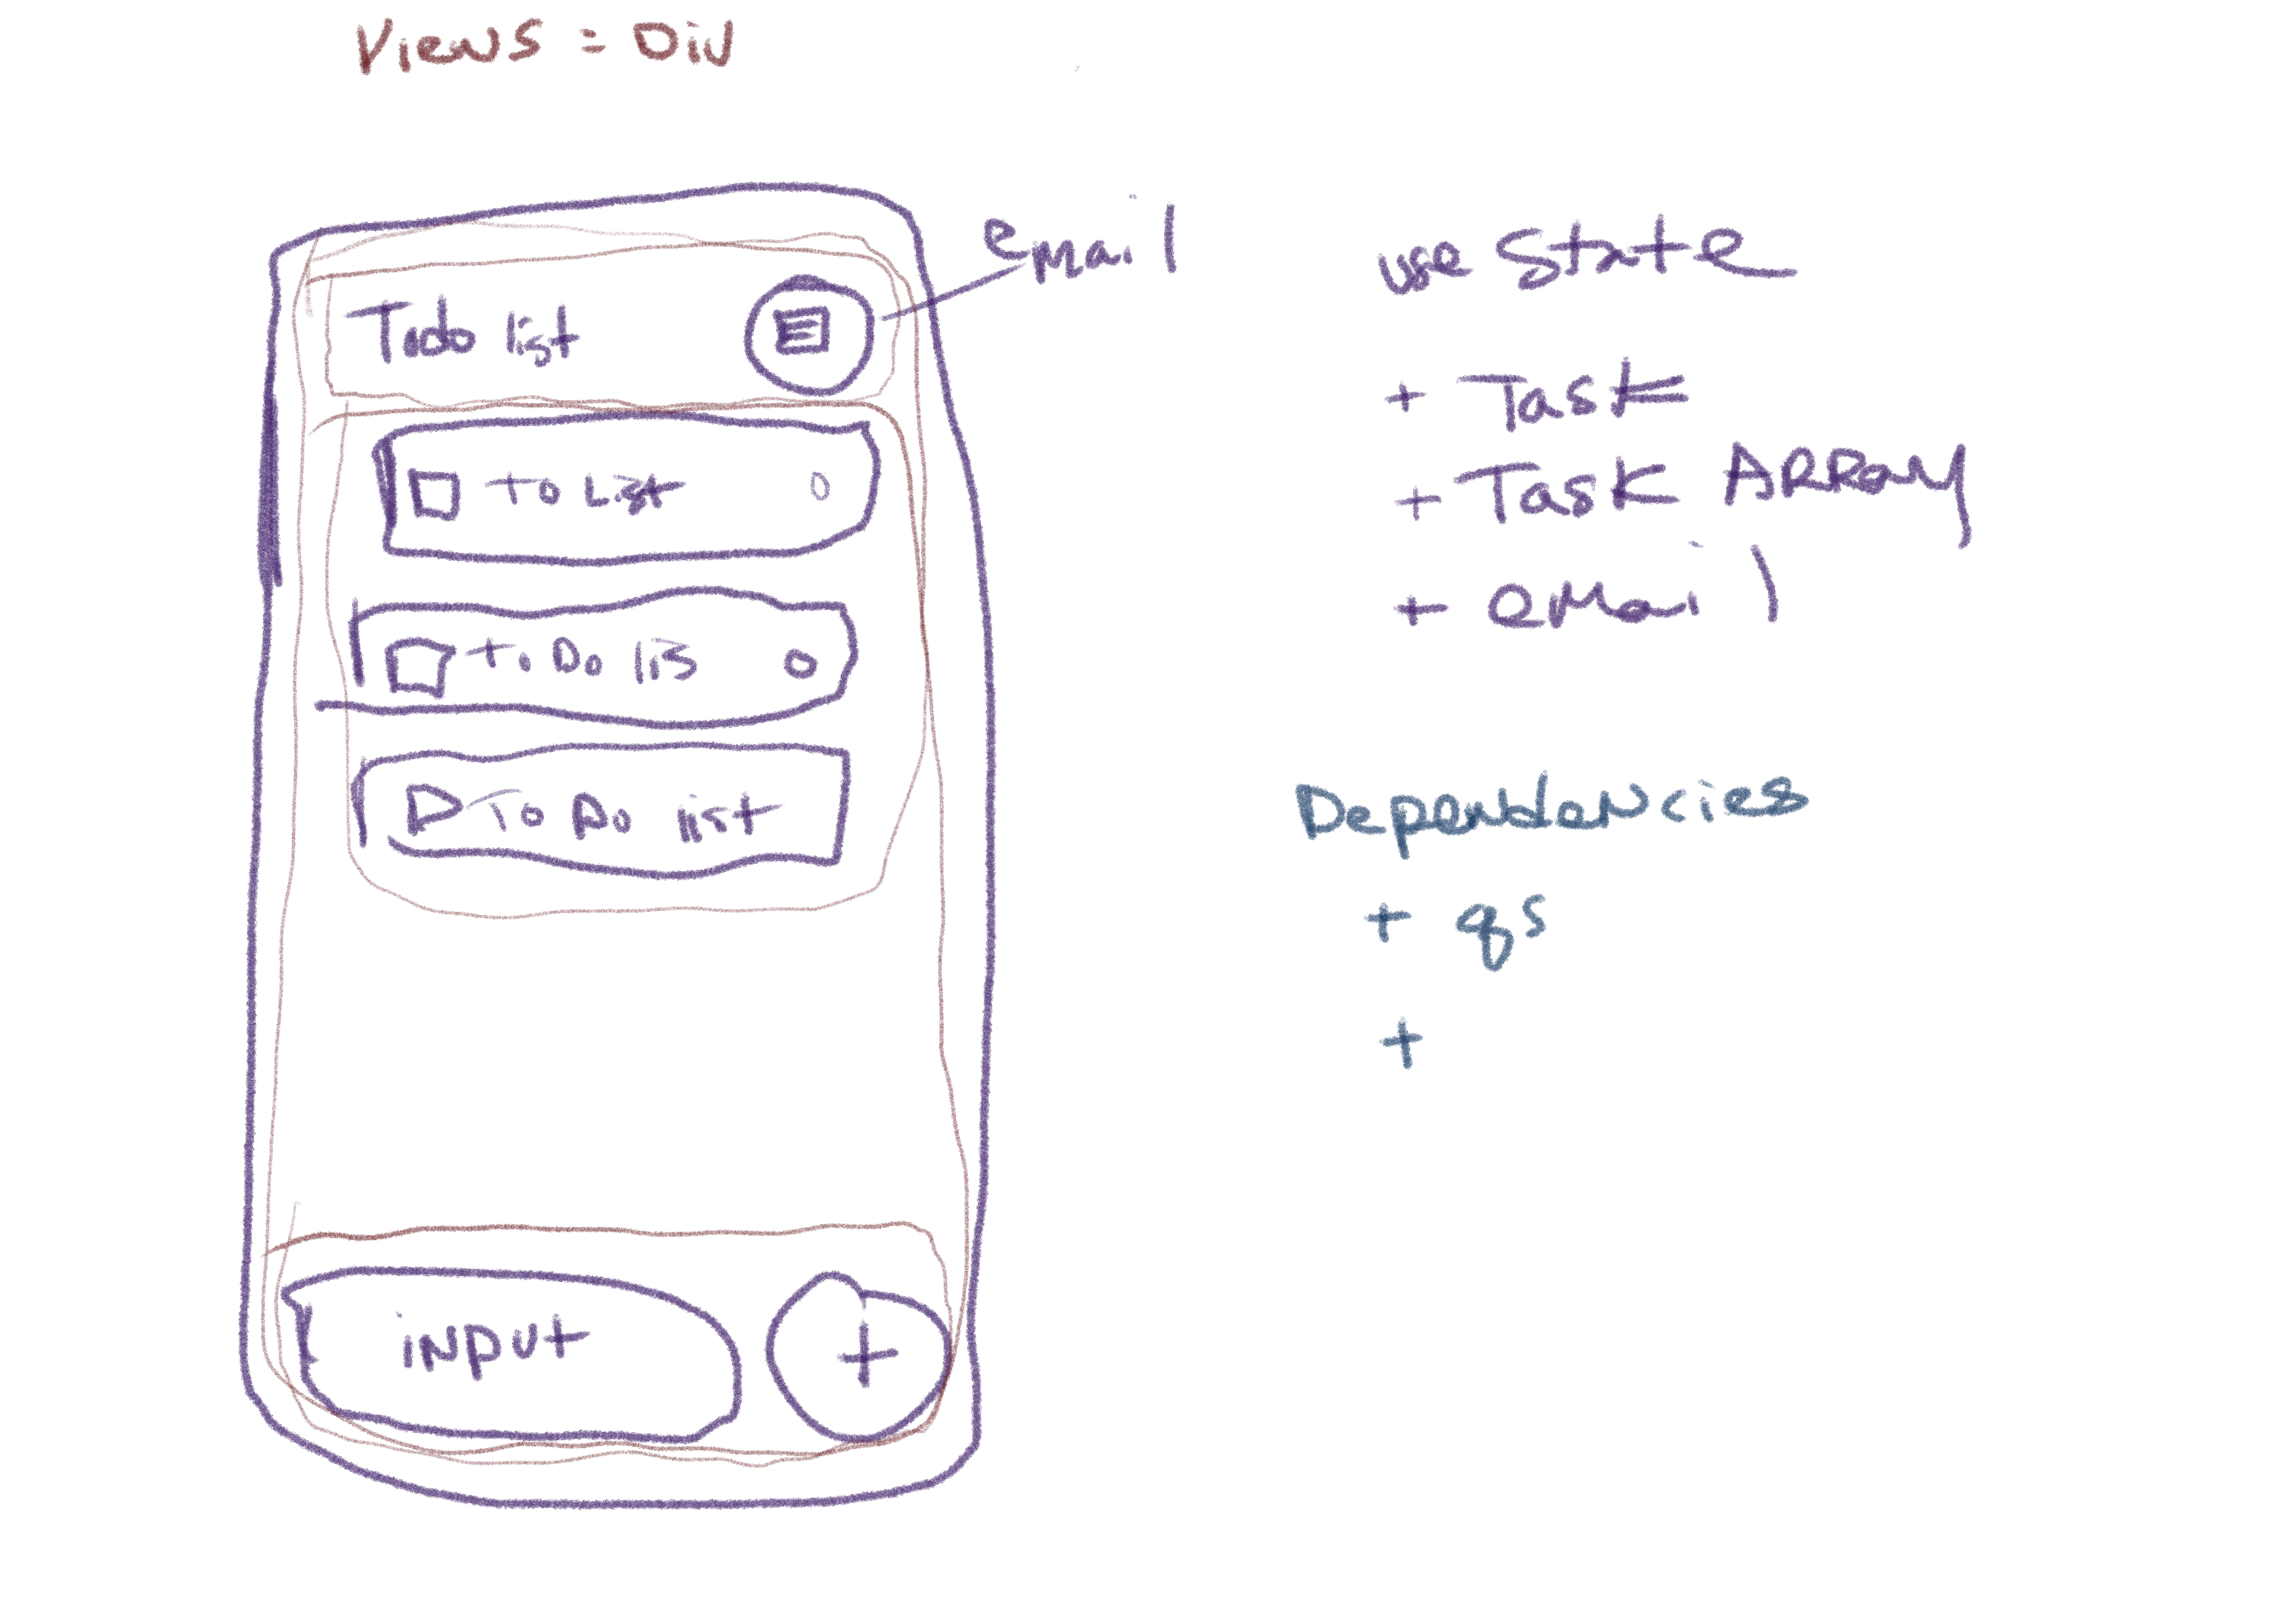 Views = Div
email
Todo list
To List
To Do lis
To Do list
input
+
use State
+ Task
+ Task ARRAY
+ email
Dependencies
+ qs
+